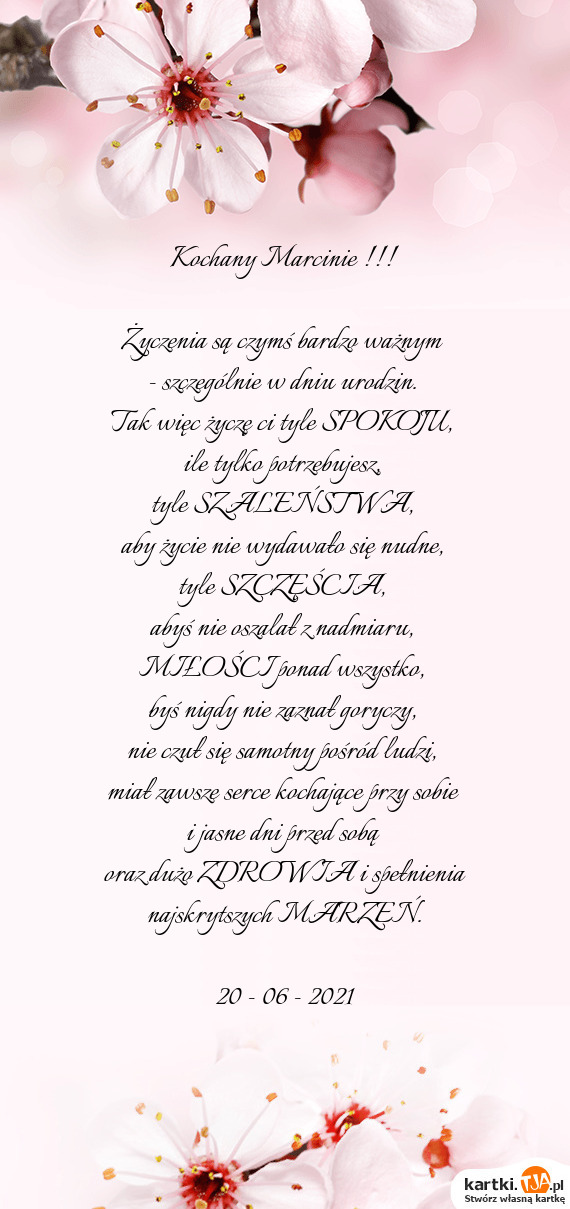 Kochany Marcinie !!!
Życzenia są czymś bardzo ważnym
- szczególnie w dniu urodzin.
Tak więc życzę ci tyle SPOKOJU,
ile tylko potrzebujesz,
tyle SZALEŃSTWA,
aby życie nie wydawało się nudne,
tyle SZCZĘŚCIA,
abyś nie oszalał z nadmiaru,
MIŁOŚCI ponad wszystko,
byś nigdy nie zaznał goryczy,
nie czuł się samotny pośród ludzi,
miał zawsze serce kochające przy sobie
i jasne dni przed sobą
oraz dużo ZDROWIA i spełnienia
najskrytszych MARZEŃ.
20 - 06 - 2021
kartki.TJA.pl
Stwórz własną kartkę